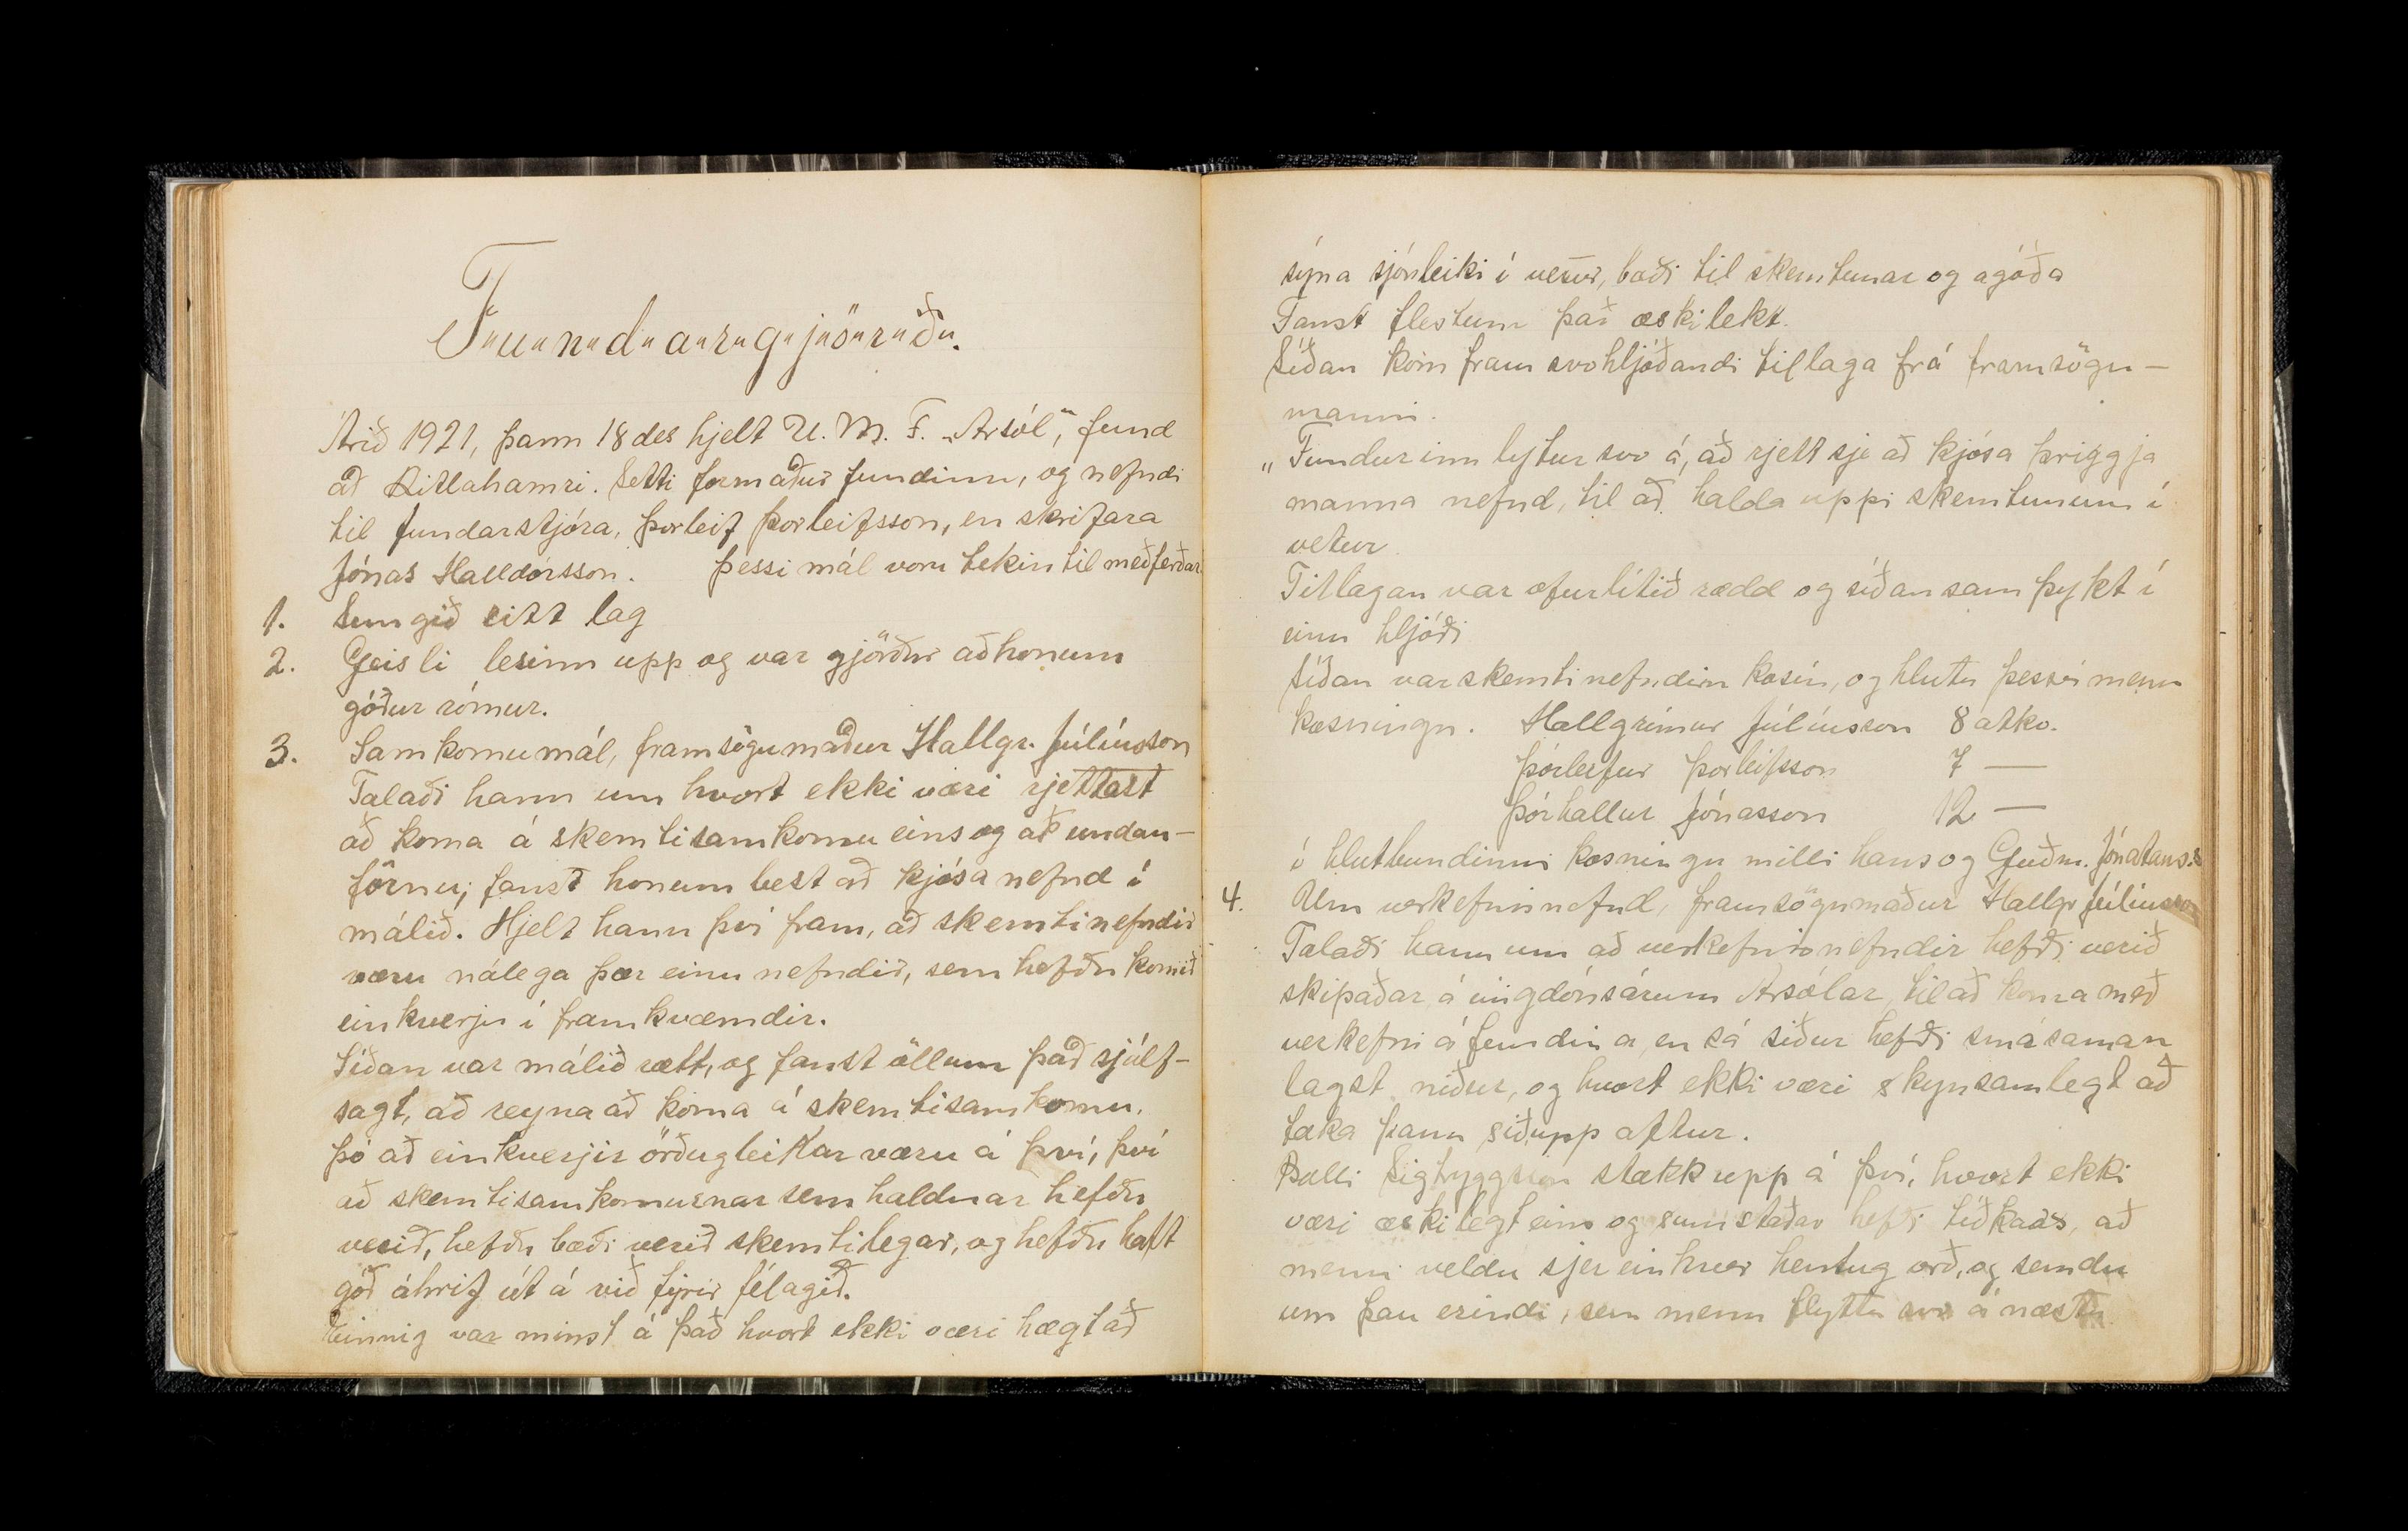 F"u"n"d"a"r"g"j"ö"r"ð".
Árið 1921, þann 18 des hjelt U. M. F. "Ársól", fund
að Ritlahamri. Setti formaður fundinn, og nefndi
til fundarstjóra, Þorleif Þorleifsson, en skrifara
Jónas Halldórsson. Þessi mál voru tekin til meðferðar
1. Sungið eitt lag
2. Geisli lesinn upp og var gjörður að honum
góður rómur.
3. Samkomumál, framsögumaður Hallgr. Júlíusson
Talaði hann um hvort ekki væri rjettast
að koma á skemtisamkomu eins og að undan-
förnu; fanst honum best að kjósa nefnd í
málið. Hjelt hann því fram, að skemtinefndir
væru nálega þær einu nefndir, sem hefðu komið
einhverju í framkvæmdir.
Síðan var málið rætt, og fanst öllum það sjálf-
sagt, að reyna að koma á skemtisamkomu.
Þó að einhverjir örðugleikar væru á því, því
að skemtisamkomurnar sem haldnar hefðu
verið, hefðu bæði verið skemtilegar, og hefðu haft
góð áhrif út á við fyrir félagið.
Einnig var minst á það hvort ekki væri hægt að
sýna sjónleiki í vetur, bæði til skemtunar og agóða
Fanst flestum það æskilekt.
Síðan kom fram svohljóðandi tillaga frá framsögu-
manni.
"Fundurinn lýtur svo á, að rjett sje að kjósa þriggja
manna nefnd, til að halda uppi skemtunum í
vetur
Tillagan var ofurlítið rædd og síðan samþykt í
einu hljóði
Síðan var skemtinefndin kosin, og hlutu þessir menn
kosningu. Hallgrímur Júlíusson 8 atkv.
Þórleifur Þorleifsson 7 —
Þórhallur Jónasson 12 —
í hlutbundinni kosningu milli hans og Guðm. Jónatans.s
4. Um verkefnisnefnd, framsögumaður Hallgr Júlíusson
Talaði hann um að verkefnisnefndir hefði verið
skipaðar á ungdómsárum Ársólar, til að koma með
verkefni á fundina, en sá siður hefði smásaman
lagst niður, og hvort ekki væri skynsamlegt að
taka þann sið upp aftur.
Palli Sigtryggsson stakk upp á því, hvort ekki
væri æskilegt eins og sumstaðar hefði tíðkaðs, að
menn veldu sjer einhver hentug orð, og sendu
um þau erindi, sem menn flyttu svo á næsta